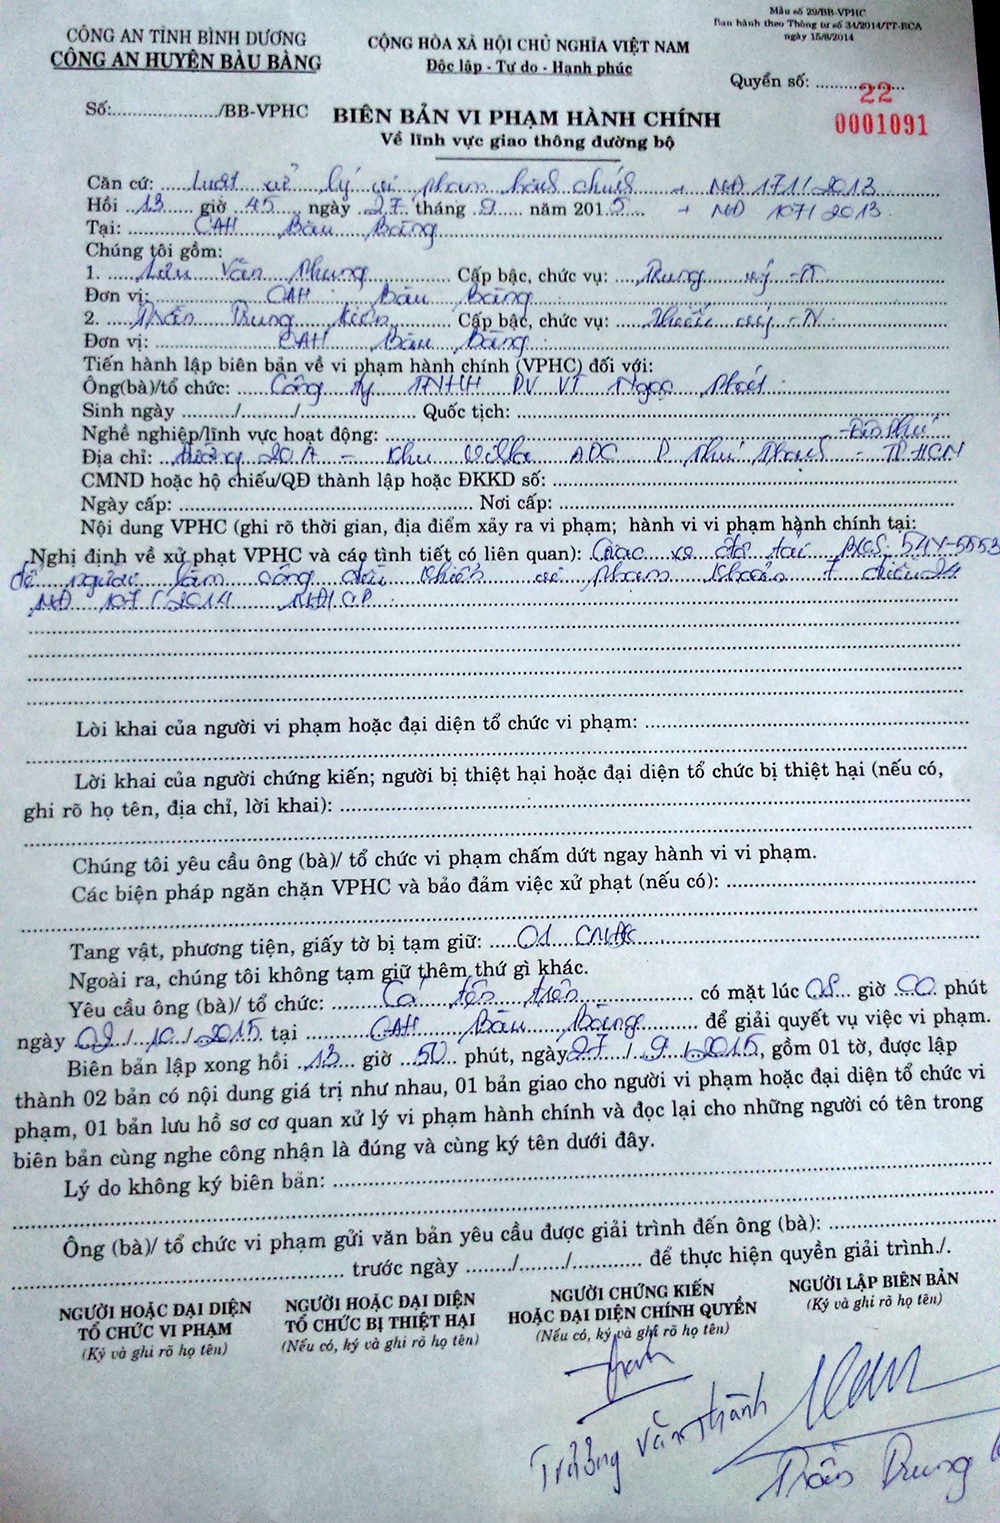 Mẫu số 29/BB-VPHC
Ban hành theo Thông tư số 34/2014/TT-BCA
ngày 15/8/2014
CÔNG AN TỈNH BÌNH DƯƠNG
CÔNG AN HUYỆN BÀU BÀNG
CỘNG HÒA XÃ HỘI CHỦ NGHĨA VIỆT NAM
Độc lập - Tự do - Hạnh phúc
Quyển số: 22
0001091
Số:..................../BB-VPHC
BIÊN BẢN VI PHẠM HÀNH CHÍNH
Về lĩnh vực giao thông đường bộ
Căn cứ: Luật xử lý vi phạm hành chính + NĐ 171/2013
Hồi 13 giờ 45, ngày 27 tháng 9 năm 2015 + NĐ 107/2013
Tại: CAH Bàu Bàng
Chúng tôi gồm:
1. Văn Phung Cấp bậc, chức vụ: Trung úy -TT
Đơn vị: CAH Bàu Bàng
2. Trần Trung Kiên Cấp bậc, chức vụ: Thiếu úy -TV
Đơn vị: CAH Bàu Bàng
Tiến hành lập biên bản về vi phạm hành chính (VPHC) đối với:
Ông(bà)/tổ chức: Công ty TNHH DV VT Ngọc Phát
Sinh ngày ........../........../.................... Quốc tịch:
Nghề nghiệp/lĩnh vực hoạt động:
Địa chỉ: đường 20A - Khu ADC P Phú - TP HCM
CMND hoặc hộ chiếu/QĐ thành lập hoặc ĐKKD số:
Ngày cấp: Nơi cấp:
Nội dung VPHC (ghi rõ thời gian, địa điểm xảy ra vi phạm; hành vi vi phạm hành chính tại:
Nghị định về xử phạt VPHC và các tình tiết có liên quan): Giao xe ôtô tải BKS: 54Y-5553
để người làm công điều khiển vi phạm khoản 7 điều 24
NĐ 107/2014 NĐ/CP
Lời khai của người vi phạm hoặc đại diện tổ chức vi phạm:
Lời khai của người chứng kiến; người bị thiệt hại hoặc đại diện tổ chức bị thiệt hại (nếu có,
ghi rõ họ tên, địa chỉ, lời khai):
Chúng tôi yêu cầu ông (bà)/ tổ chức vi phạm chấm dứt ngay hành vi vi phạm.
Các biện pháp ngăn chặn VPHC và bảo đảm việc xử phạt (nếu có):
Tang vật, phương tiện, giấy tờ bị tạm giữ: 01
Ngoài ra, chúng tôi không tạm giữ thêm thứ gì khác.
Yêu cầu ông (bà)/ tổ chức: Có tên trên có mặt lúc 08 giờ 00 phút
ngày 02/10/2015 tại CAH Bàu Bàng để giải quyết vụ việc vi phạm.
Biên bản lập xong hồi 13 giờ 50 phút, ngày 27/9/2015, gồm 01 tờ, được lập
thành 02 bản có nội dung giá trị như nhau, 01 bản giao cho người vi phạm hoặc đại diện tổ chức vi
phạm, 01 bản lưu hồ sơ cơ quan xử lý vi phạm hành chính và đọc lại cho những người có tên trong
biên bản cùng nghe công nhận là đúng và cùng ký tên dưới đây.
Lý do không ký biên bản:
Ông (bà)/ tổ chức vi phạm gửi văn bản yêu cầu được giải trình đến ông (bà):
trước ngày ......../......../............ để thực hiện quyền giải trình./.
NGƯỜI HOẶC ĐẠI DIỆN
TỔ CHỨC VI PHẠM
(Ký và ghi rõ họ tên)
NGƯỜI HOẶC ĐẠI DIỆN
TỔ CHỨC BỊ THIỆT HẠI
(Nếu có, ký và ghi rõ họ tên)
NGƯỜI CHỨNG KIẾN
HOẶC ĐẠI DIỆN CHÍNH QUYỀN
(Nếu có, ký và ghi rõ họ tên)
NGƯỜI LẬP BIÊN BẢN
(Ký và ghi rõ họ tên)
Trưởng Văn Thành
Trần Trung